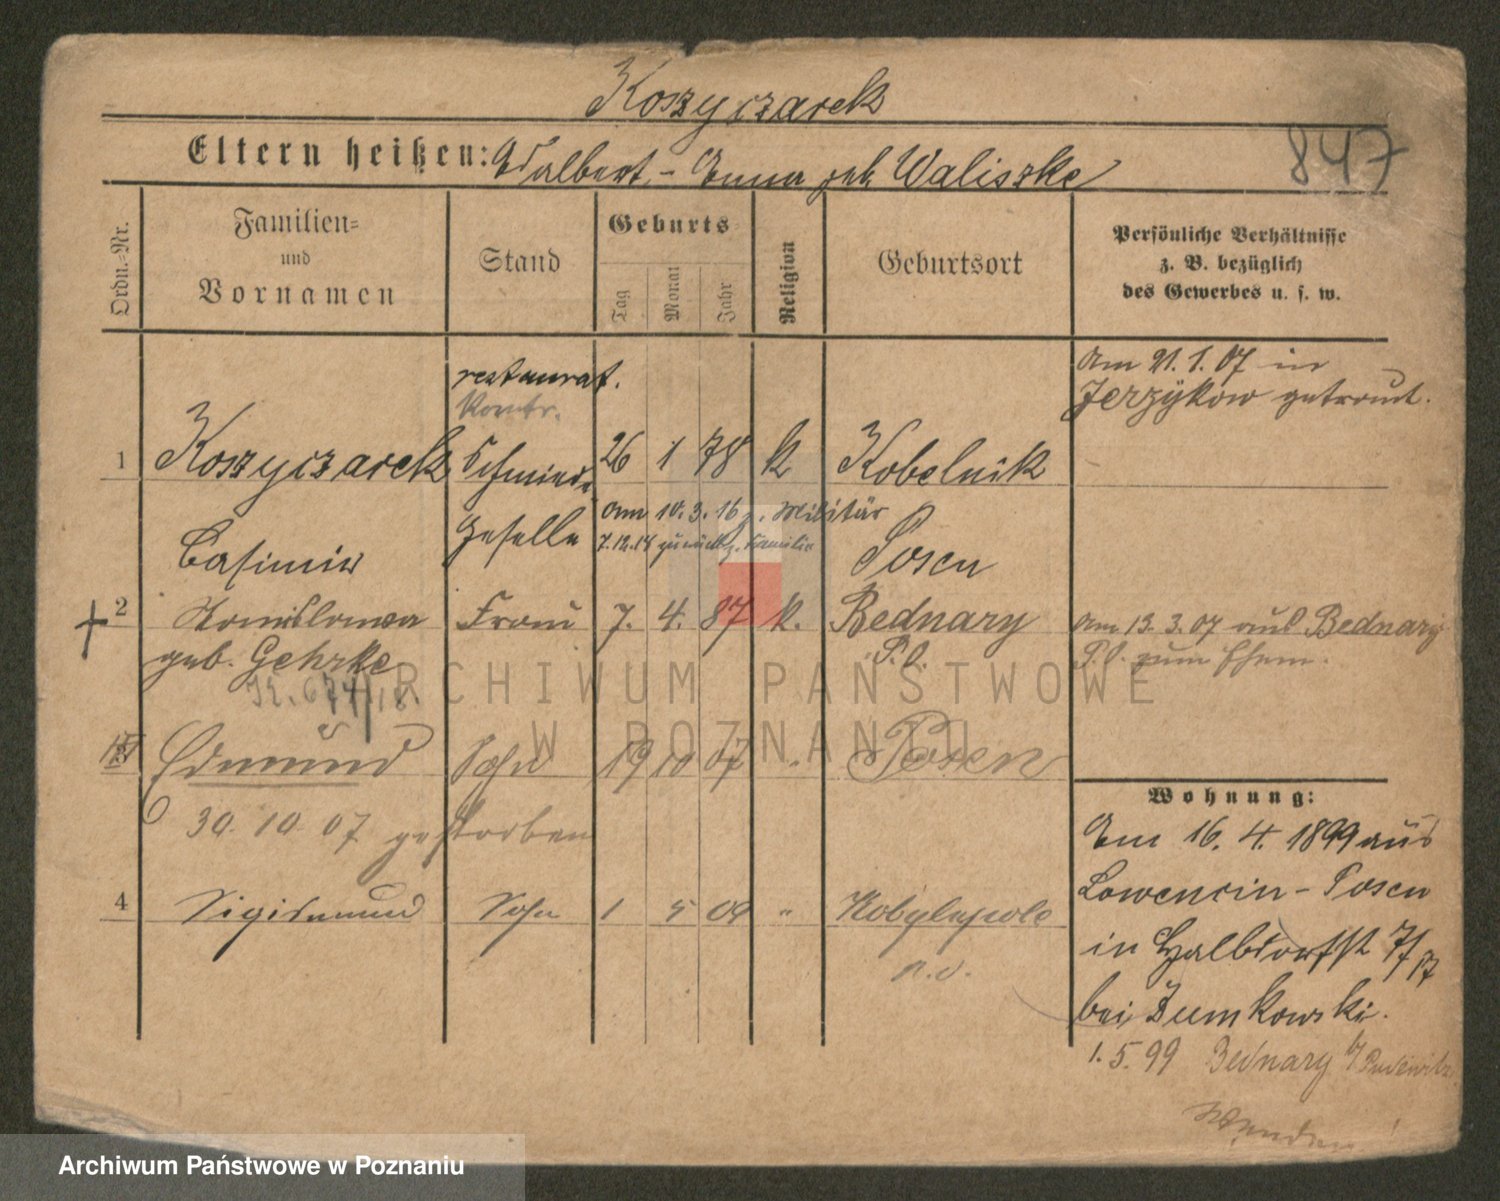 Koszyczarek
847
Eltern heißen: Adalbert - Anna geb Waliszke
Ordn.-Nr.
Familien-
und
Vornamen
Stand
Geburts
Tag
Monat
Jahr
Religion
Geburtsort
Persönliche Verhältnisse
z. B. bezüglich
des Gewerbes u. s. w.
restaurat.
Kontr.
am 21. 1. 07 in
Jerzykow getraut.
1 Koszyczarek Schmiede 26 1 78 k Kobelnik
Geselle
am 10. 3. 16 z. Militär
7.12.18 zurück z. Familie
Casimir
Posen
2 Stanislawa Frau 7. 4. 87 k. Bednary
am 13. 3. 07 aus Bednary
geb. Gehrke
P. O.
P. O. zum Ehem.
674/18.
3 Edmund Sohn 19 10 07 Posen
30. 10. 07 gestorben
4 Sigismund Sohn 1 5 09 " Kobylepole
P. O.
Wohnung:
Am 16. 4. 1899 aus
Lowencin - Posen
in Halbdorfst 7/17
bei Dumkowski.
1. 5. 99 Bednary b/ Pudewitz
Wenden !
ARCHIWUM PAŃSTWOWE
W POZNANIU
Archiwum Państwowe w Poznaniu